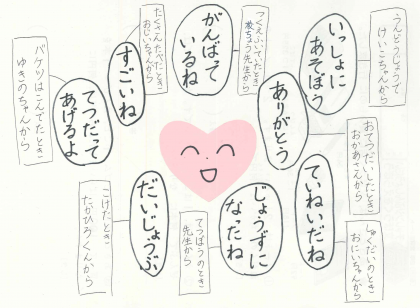 うんどうじょうで
けいこちゃんから
いっしょに
あそぼう
つくえふいていたとき
先生から
がんばって
いるね
たくさんたべたとき
おじいちゃんから
すごいね
バケツはこんでたとき
ゆきのちゃんから
てつだって
あげるよ
おてつだいしたとき
おかあさんから
ありがとう
しゅくだいのとき
おにいちゃんから
ていねいだね
てつぼうのとき
先生から
じょうずに
なったね
こけたとき
たかひろくんから
だいじょうぶ